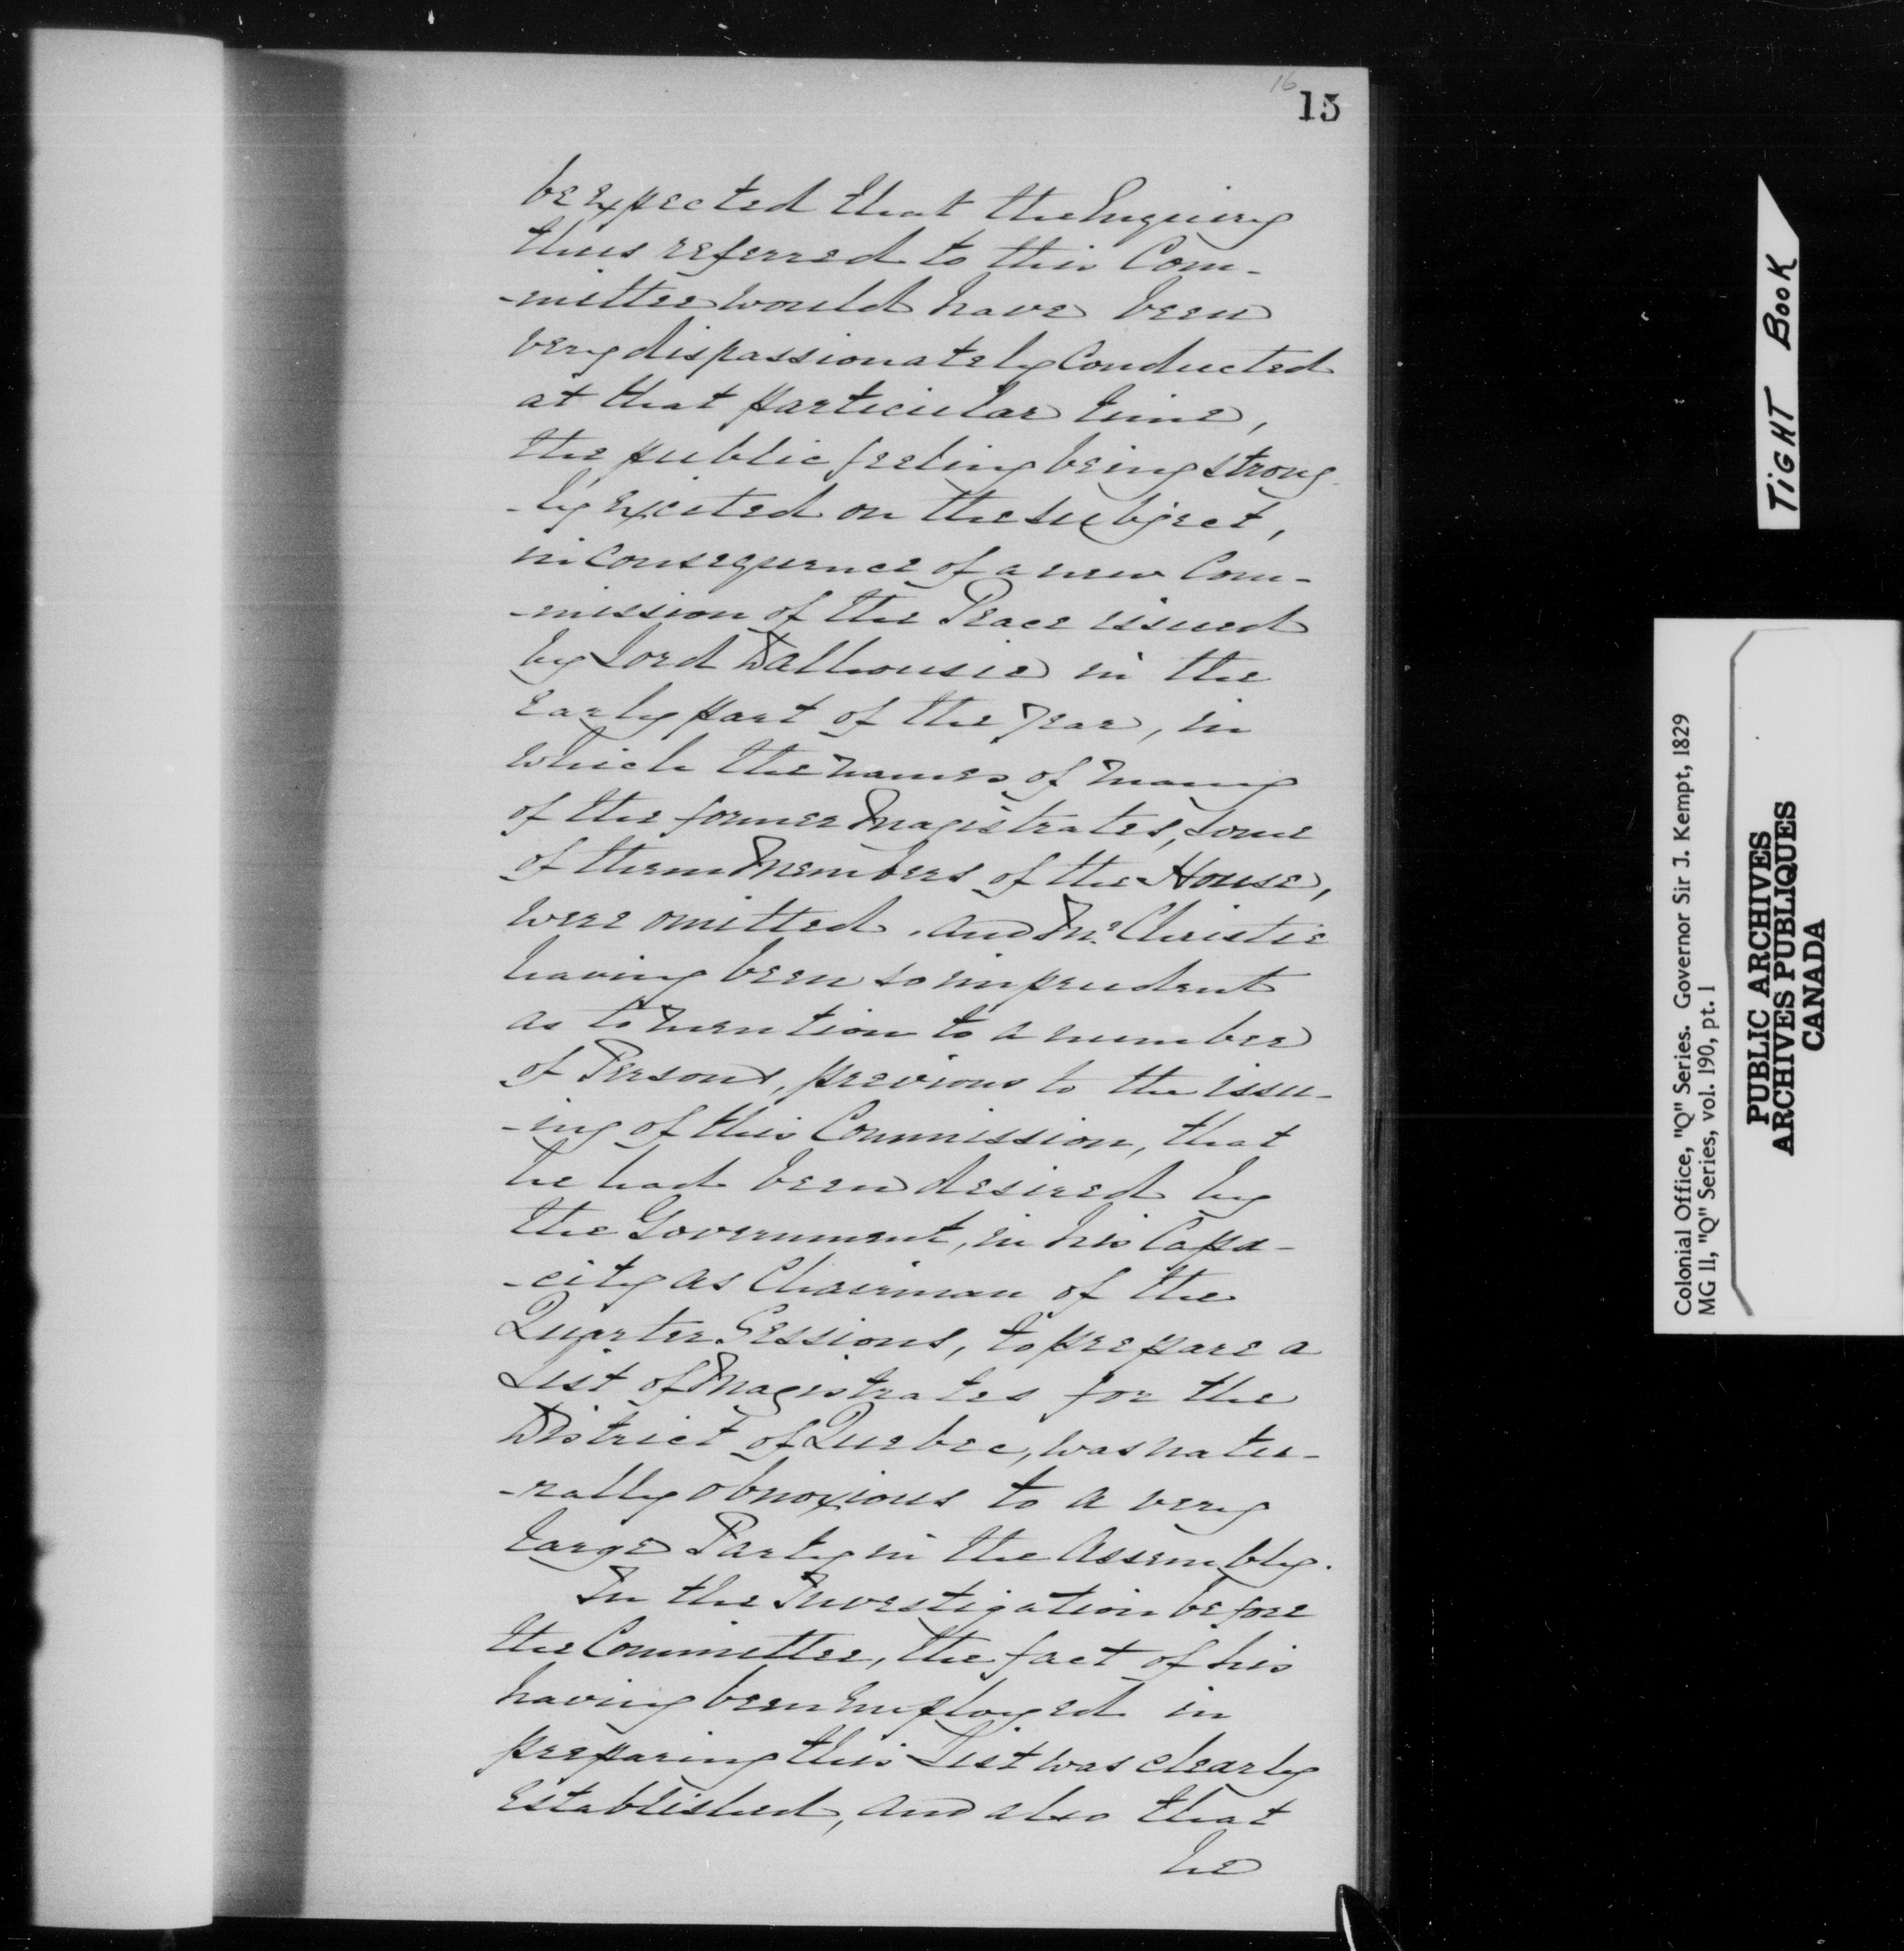 16
15
be expected that the Inquiry
thus referred to this Com-
-mittee would have been
very dispassionately Conducted
at that particular time,
the public feeling being strong-
-ly excited on the subject,
in Consequence of a new Com-
-mission of the Peace issued
by Lord Dalhousie in the
early part of the year, in
which the names of many
of the former Magistrates, some
of them Members of the House,
were omitted. And Mr. Christie
having been so imprudent
as to mention to a number
of Persons, previous to the issu-
-ing of this Commission, that
he had been desired by
the Government, in his Capa-
-city as Chairman of the
Quarter Sessions, to prepare a
List of Magistrates for the
District of Quebec, was natu-
-rally obnoxious to a very
large Party in the Assembly.
In the Investigation before
the Committee, the fact of his
having been employed in
preparing this List was clearly
established, and also that
he
TIGHT BOOK
Colonial Office, "Q" Series. Governor Sir J. Kempt, 1829
MG 11, "Q" Series, vol. 190, pt. 1
PUBLIC ARCHIVES
ARCHIVES PUBLIQUES
CANADA